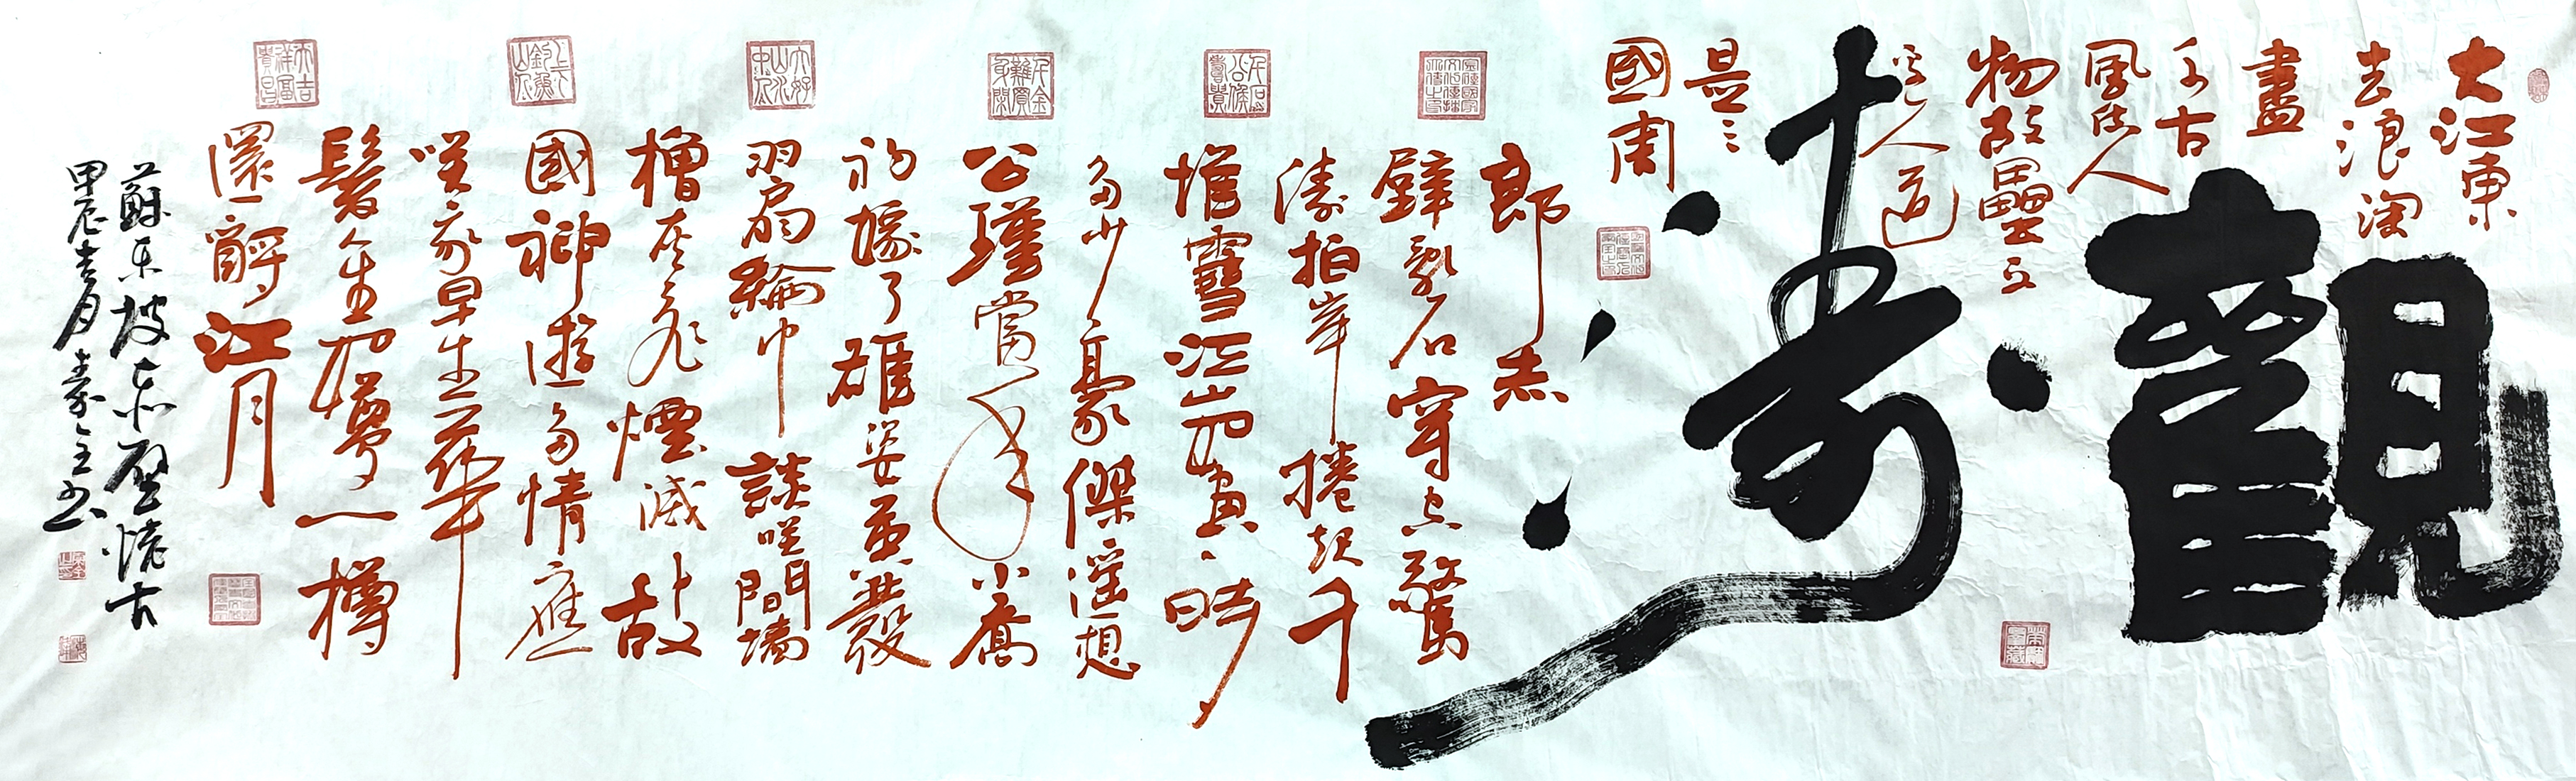 觀濤
大江東
去浪淘
盡
千古
風流人
物故壘西
邊人道
是三
國周
郎赤
壁亂石穿空驚
濤拍岸捲起千
堆雪江山如畫一時
多少豪傑遙想
公瑾當年小喬
初嫁了雄姿英發
羽扇綸巾談笑間墻
櫓灰飛煙滅故
國神遊多情應
笑我早生華
髮人生如夢一樽
還酹江月
蘇東坡赤壁懷古
甲辰月书